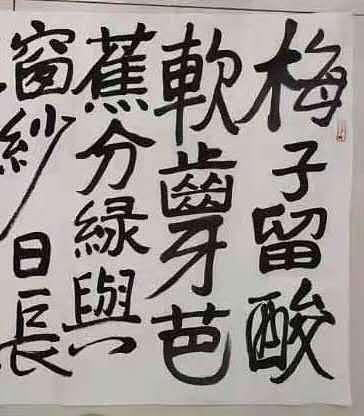 梅子留酸
軟齒牙芭
蕉分緑與
窗紗日長